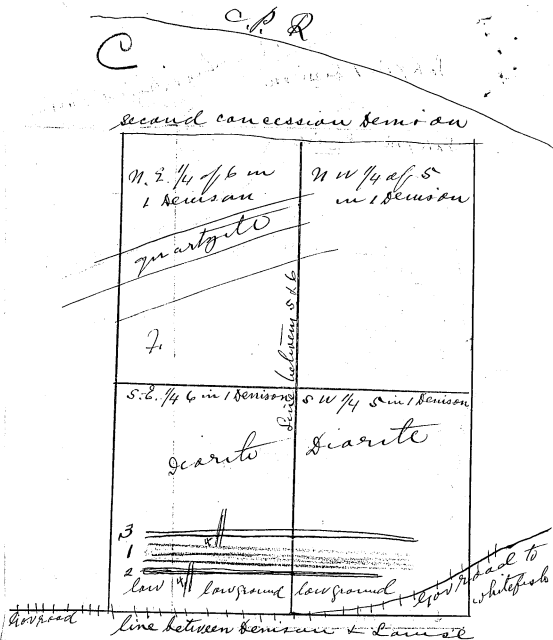 C. P. R
C
second concession Denison
N. E. 1/4 of 6 in
1 Denison
N W 1/4 of 5
in 1 Denison
quartzite
line between 5 & 6
S. E. 1/4 6 in 1 Denison
S W 1/4 5 in 1 Denison
Diorite
Diorite
3
1
2
low
low ground
low ground
Gov road to
whitefish
Gov road
line between Denison & Louise